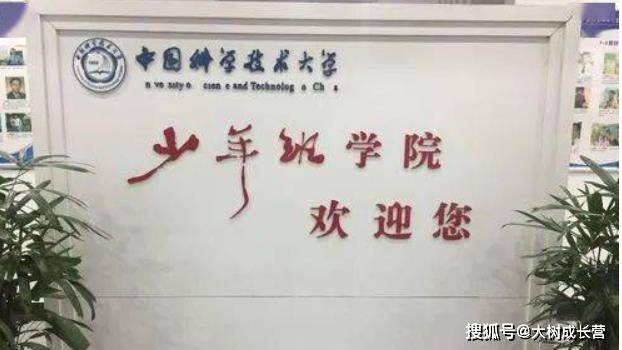 中国科学技术大学
n ve sity o cien e and Technolog o Ch a
少年班学院
欢迎您
搜狐号@大树成长营